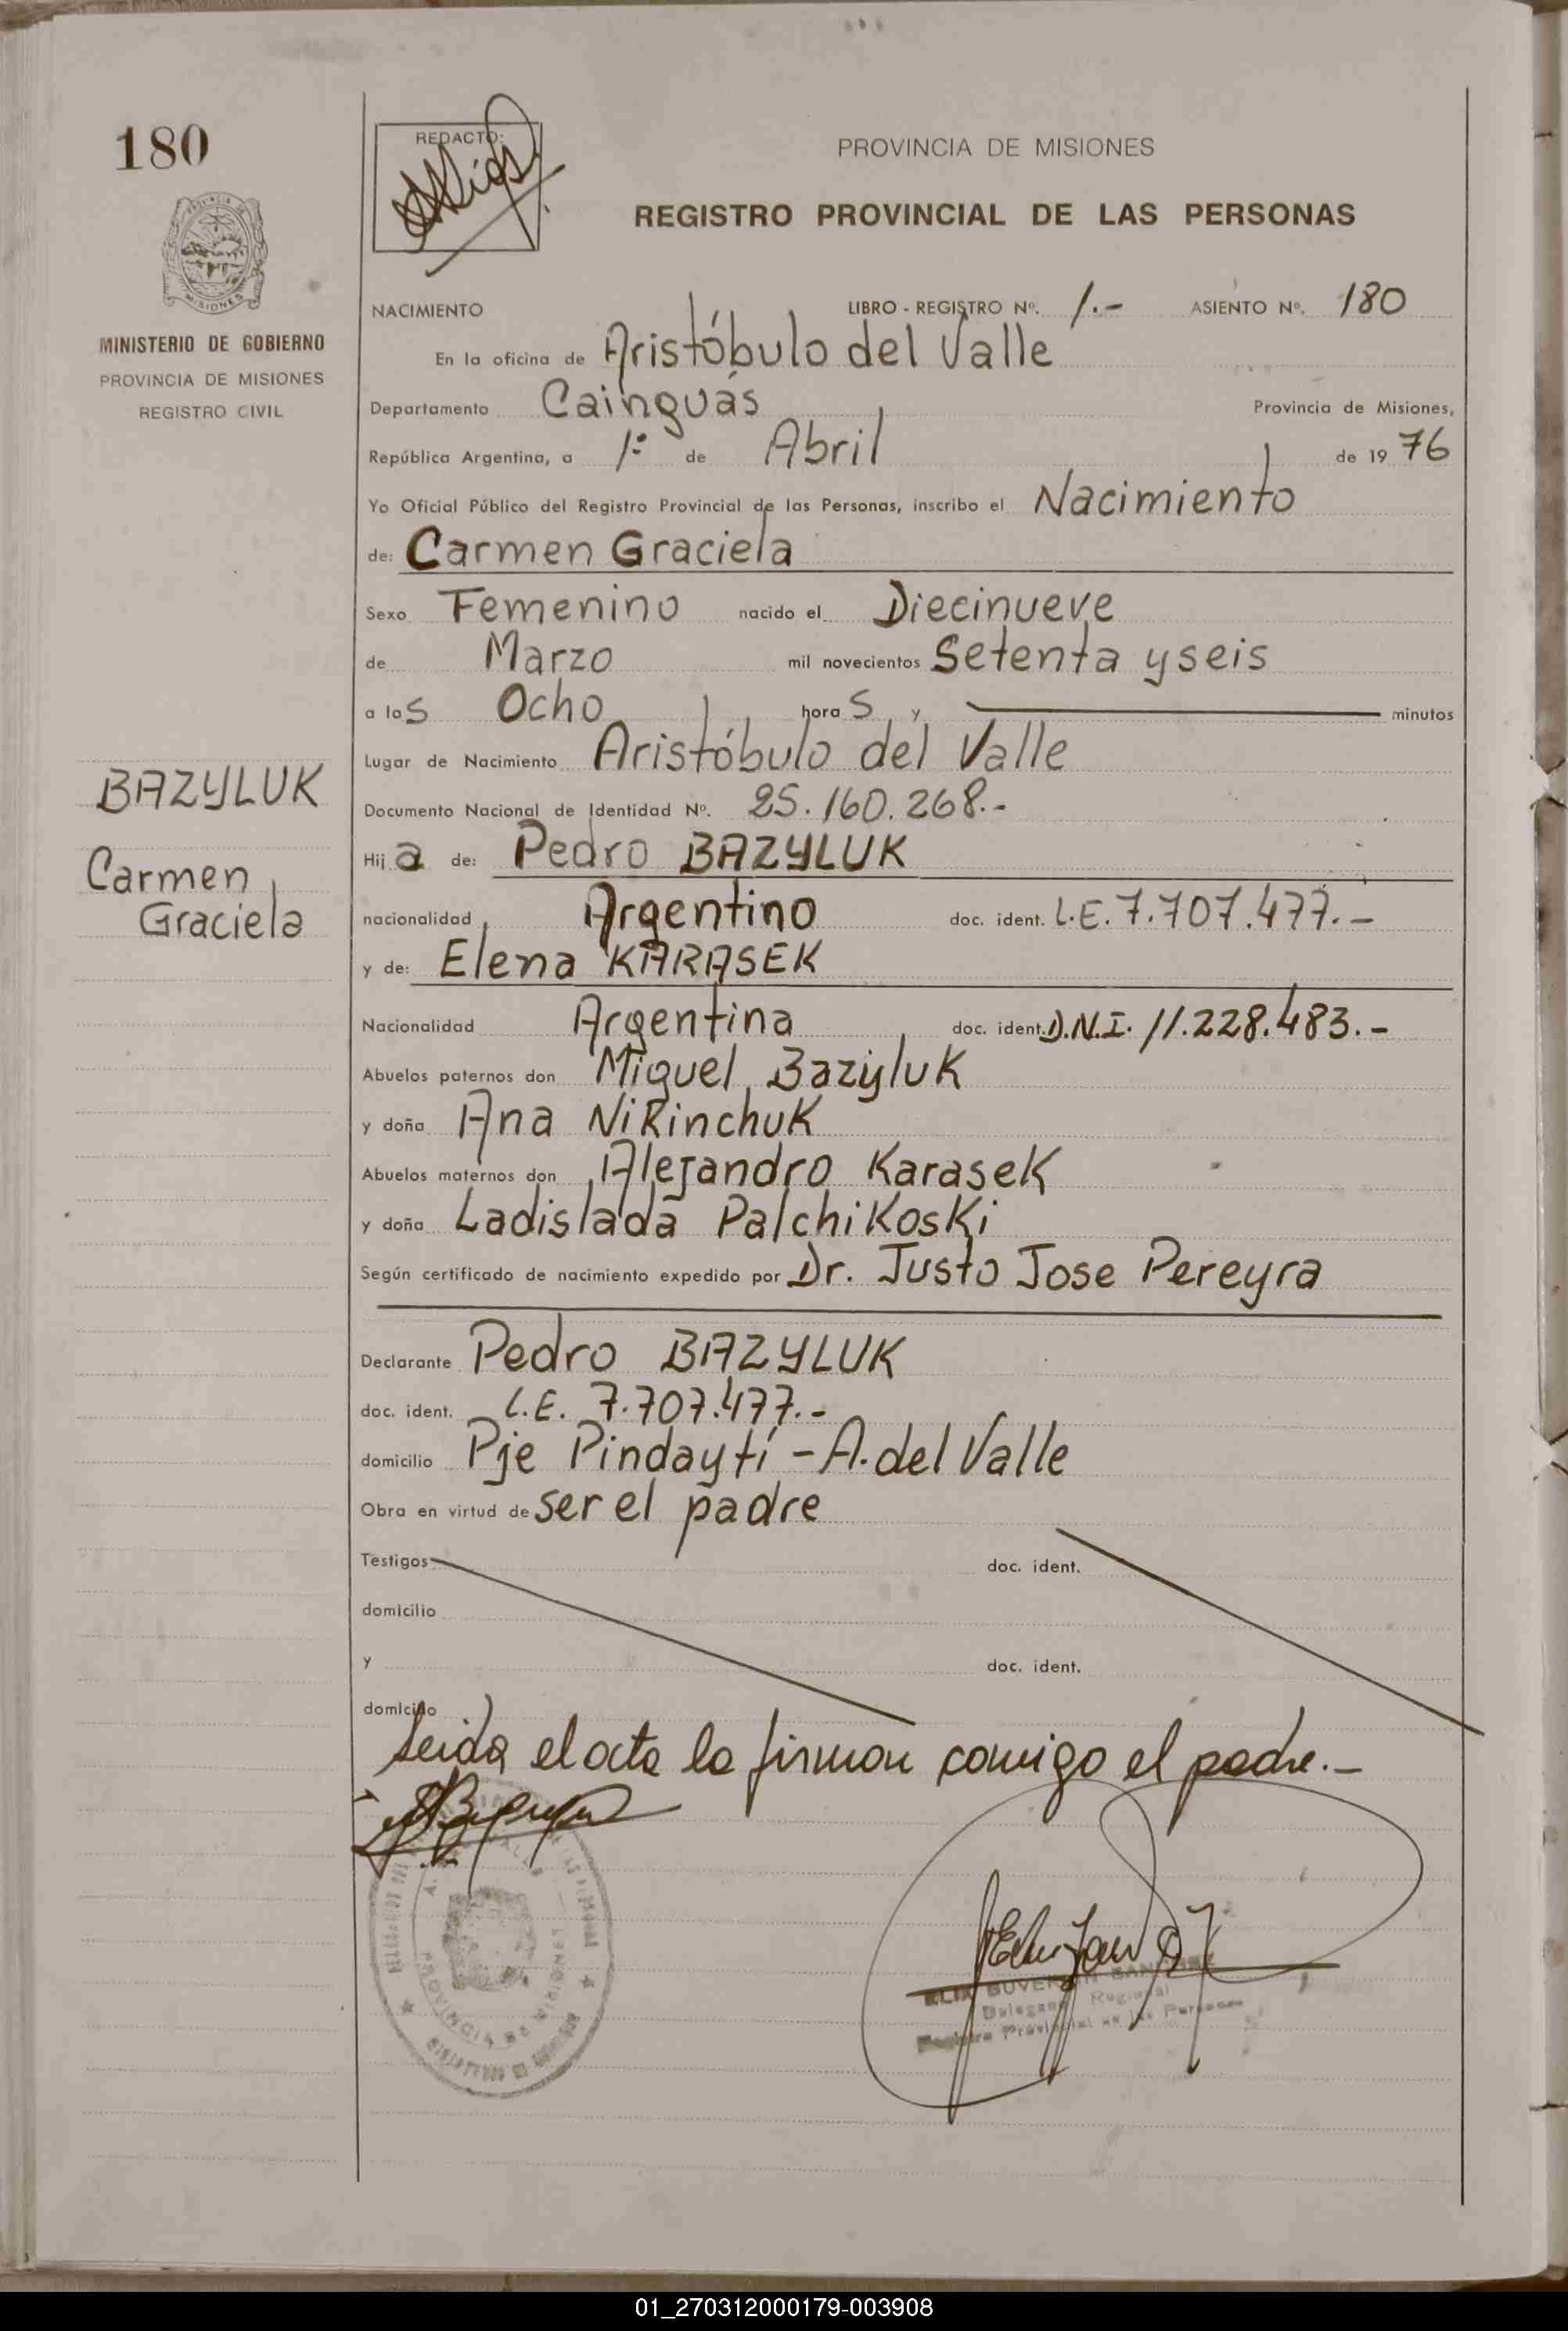 180
REDACTO:
PROVINCIA DE MISIONES
REGISTRO PROVINCIAL DE LAS PERSONAS
MISIONES
MINISTERIO DE GOBIERNO
PROVINCIA DE MISIONES
REGISTRO CIVIL
NACIMIENTO LIBRO - REGISTRO Nº. 1.- ASIENTO Nº. 180
En la oficina de Aristóbulo del Valle
Departamento Cainguás Provincia de Misiones,
República Argentina, a 1º de Abril de 1976
Yo Oficial Público del Registro Provincial de las Personas, inscribo el Nacimiento
de: Carmen Graciela
Sexo Femenino nacido el Diecinueve
de Marzo mil novecientos Setenta y seis
a las Ocho horas y minutos
Lugar de Nacimiento Aristóbulo del Valle
Documento Nacional de Identidad Nº. 25.160.268.-
BAZYLUK
Carmen
Graciela
Hija de: Pedro BAZYLUK
nacionalidad Argentino doc. ident. L.E. 7.707.477.-
y de: Elena KARASEK
Nacionalidad Argentina doc. ident. D.N.I. 11.228.483.-
Abuelos paternos don Miguel Bazyluk
y doña Ana NiKinchuK
Abuelos maternos don Alejandro Karasek
y doña Ladislada PalchiKosKi
Según certificado de nacimiento expedido por Dr. Justo Jose Pereyra
Declarante Pedro BAZYLUK
doc. ident. L.E. 7.707.477.-
domicilio Pje Pindaytí - A. del Valle
Obra en virtud de ser el padre
Testigos doc. ident.
domicilio
y doc. ident.
domicilio
Leida el acta la firman comigo el padre.-
PROVINCIA DE MISIONES
Delegado Regional
Registro Provincial de las Personas
01_270312000179-003908